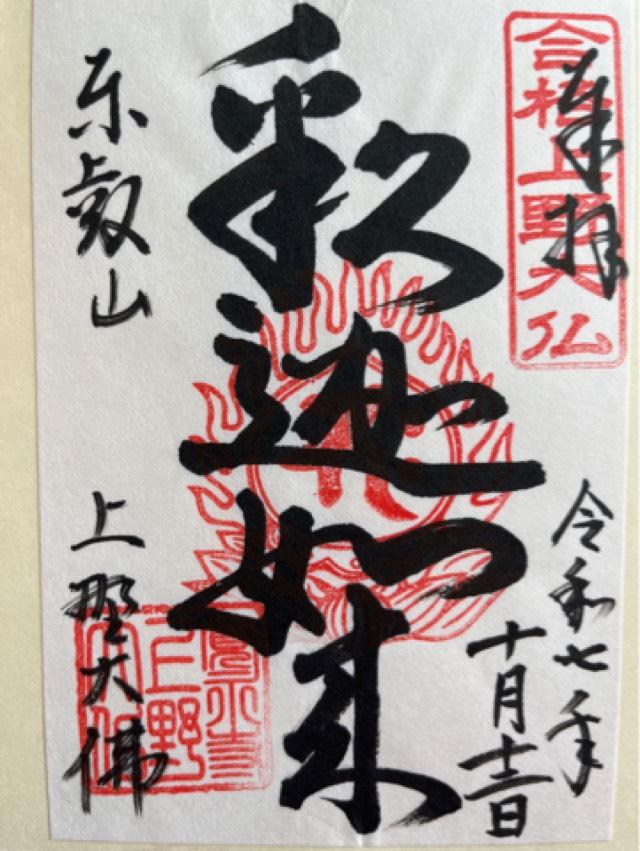 奉拝
合格上野大仏
令和七年
十月十三日
釈迦如来
東叡山
上野大佛